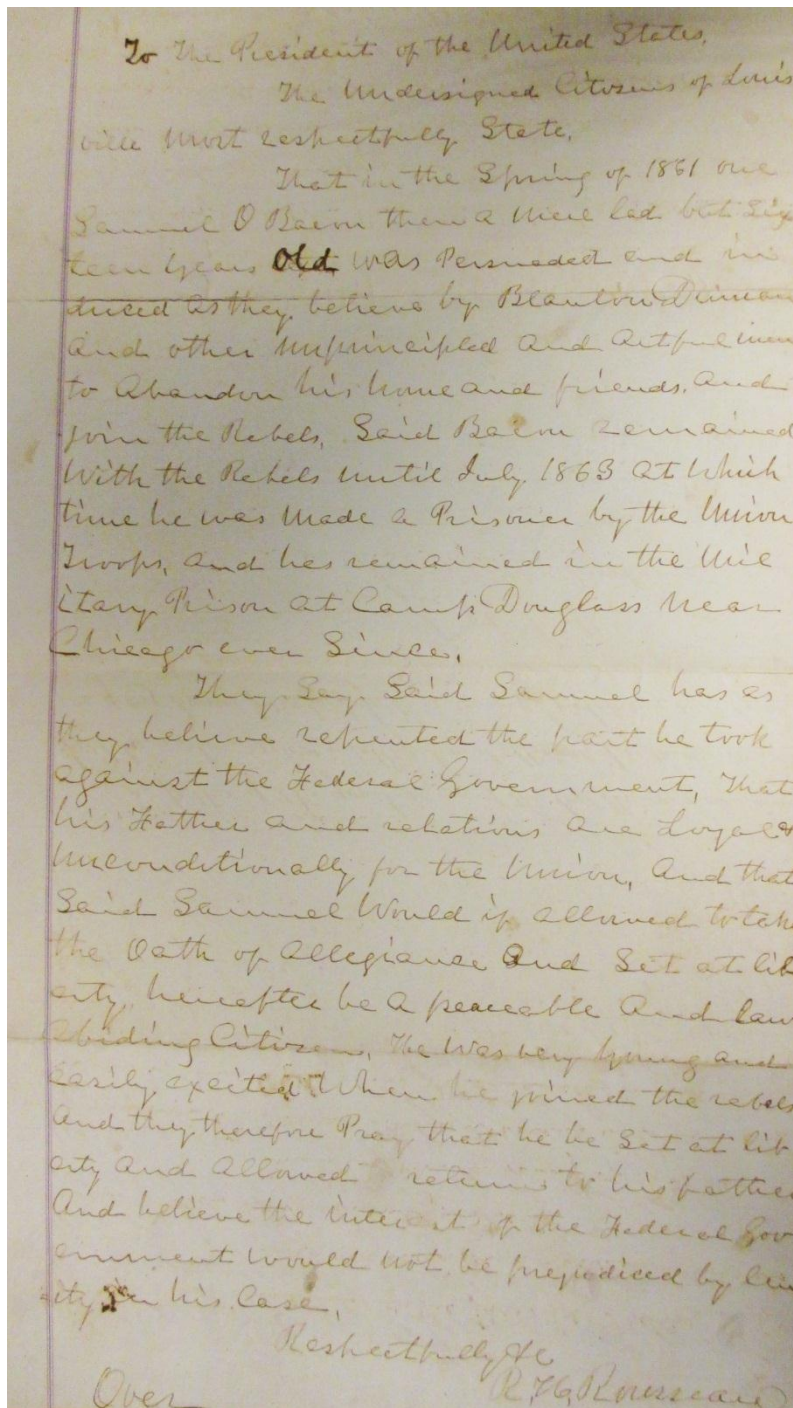 To The President of the United States,
The Undersigned Citizens of Louis
ville Most respectfully State,
That in the Spring of 1861 one
Samuel O Bacon then a Mere lad but Six
teen Years Old was Persuaded and in
duced as they believe by Blanton Duncan
And other Unprincipled And Artful men
to Abandon his home and friends. And
join the Rebels, Said Bacon remained
With the Rebels until July 1863 at Which
time he was Made a Prisoner by the Union
Troops, and has remained in the Mil
itary Prison at Camp Douglass Near
Chicago ever Since,
They Say Said Samuel has as
they believe repented the part he took
against the Federal Government, That
his Father and relations are Loyal &
Unconditionally for the Union, And that
Said Samuel Would if allowed to take
the Oath of Allegiance And Set at lib
erty, hereafter be a peaceable And law
abiding Citizen, He Was very Young and
easily excited When he joined the rebels
And they therefore Pray that he be Set at lib
erty And Allowed return to his father
And believe the interest of the Federal Gov
ernment Would not be prejudiced by len
ity in his Case,
Respectfully &c
R. H. Rousseau
Over